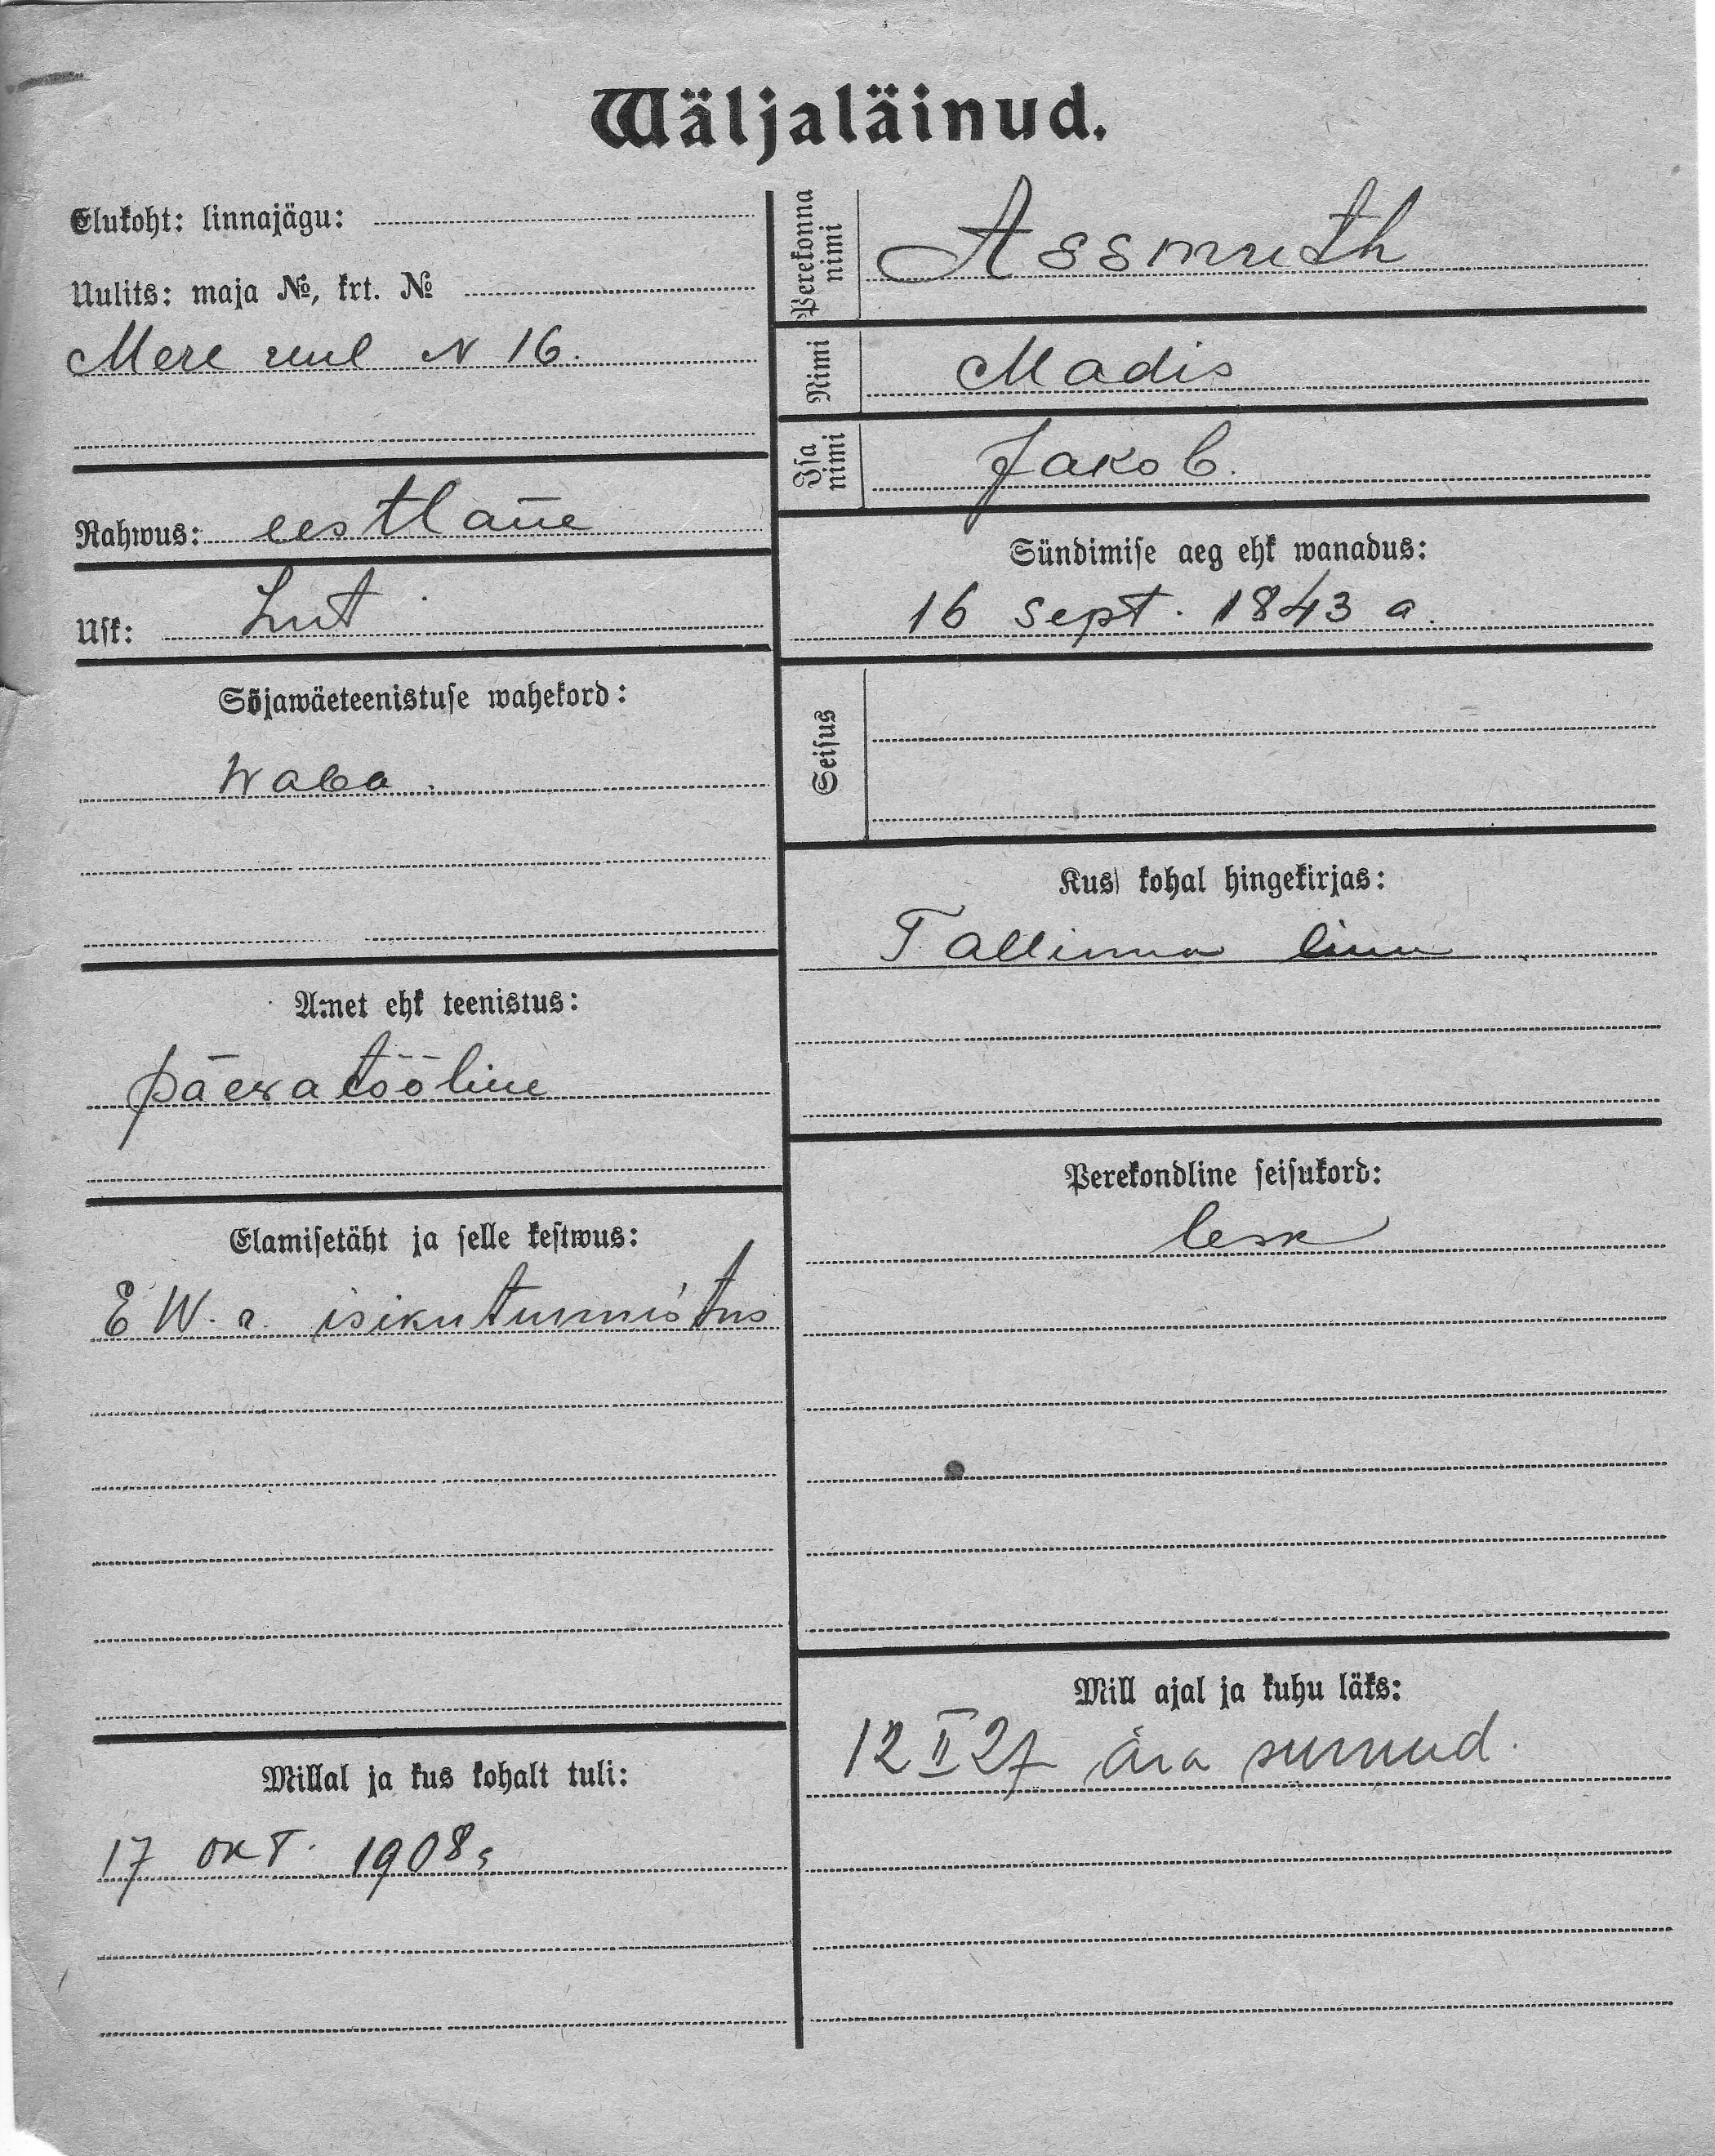 Wäljaläinud.
Elukoht: linnajägu:
Uulits: maja №, krt. №
Mere uul N 16.
Rahwus: eestlane
Usk: Lut.
Sõjawäeteenistuse wahekord:
Waba.
Amet ehk teenistus:
päewatööline
Elamisetäht ja selle kestwus:
E W. a. isikutunnistus
Millal ja kus kohalt tuli:
17 okt. 1908.
Perekonna nimi
Assmuth
Nimi
Madis
Isa nimi
Jakob.
Sündimise aeg ehk wanadus:
16 sept. 1843 a.
Seisus
Kus kohal hingekirjas:
Tallinna linn
Perekondline seisukord:
lesk
Mill ajal ja kuhu läks:
12 II 27 ära surnud.